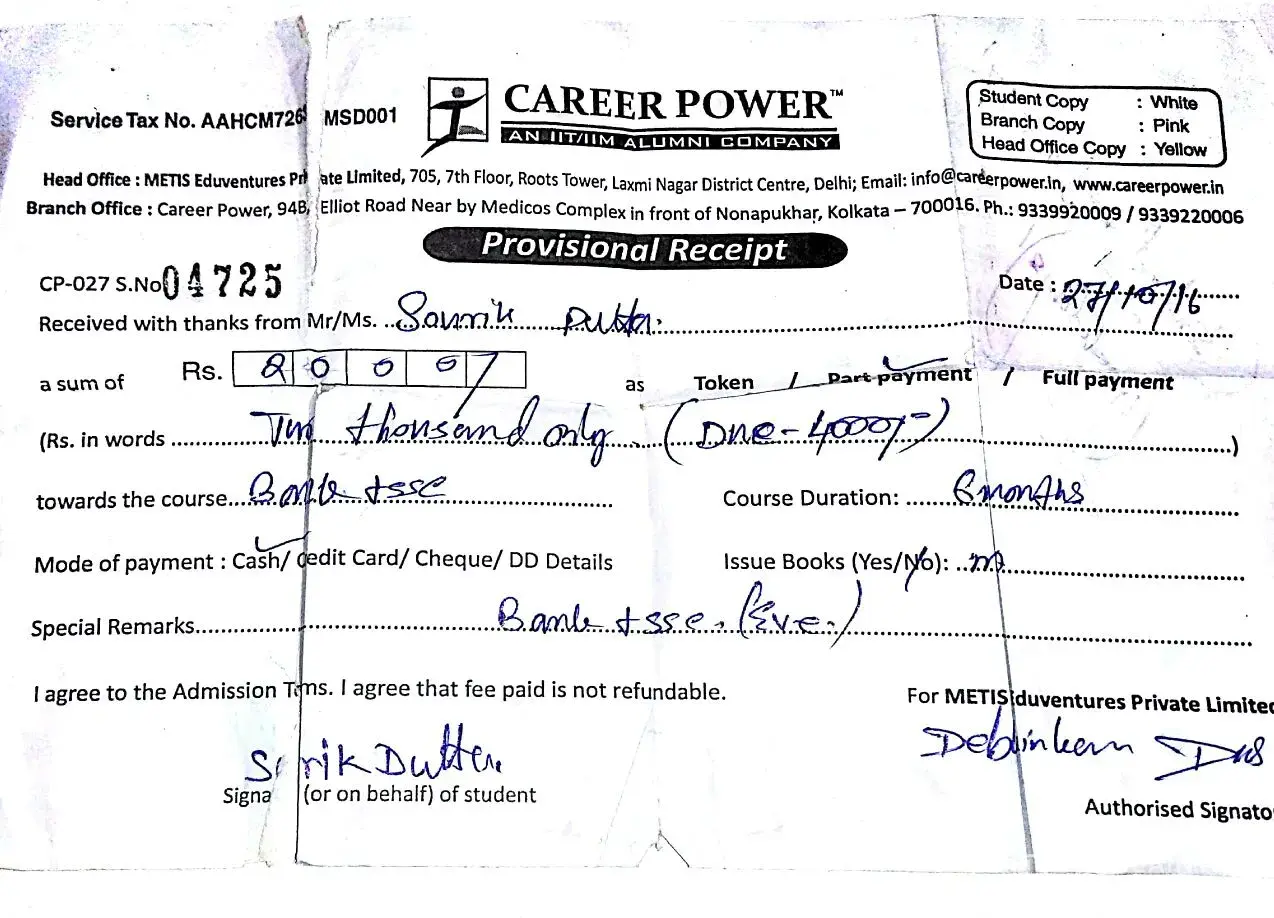 CAREER POWER™
AN IIT/IIM ALUMNI COMPANY
Service Tax No. AAHCM726 MSD001
Student Copy : White
Branch Copy : Pink
Head Office Copy : Yellow
Head Office : METIS Eduventures Pri ate Limited, 705, 7th Floor, Roots Tower, Laxmi Nagar District Centre, Delhi; Email: info@careerpower.in, www.careerpower.in
Branch Office : Career Power, 94B, Elliot Road Near by Medicos Complex in front of Nonapukhar, Kolkata – 700016. Ph.: 9339920009 / 9339220006
Provisional Receipt
CP-027 S.No 04725
Date : 27/10/16
Received with thanks from Mr/Ms. Sourik Dutta.
a sum of Rs. 2000/ as Token / Part payment / Full payment
(Rs. in words thousand only. (Due - 4000/-) )
towards the course Bank + SSC Course Duration: 6 months
Mode of payment : Cash/ edit Card/ Cheque/ DD Details Issue Books (Yes/No): no
Special Remarks Bank + SSC. (Eve.)
I agree to the Admission T ms. I agree that fee paid is not refundable.
For METIS duventures Private Limited
S rik Dutta
Signa (or on behalf) of student
Das
Authorised Signato